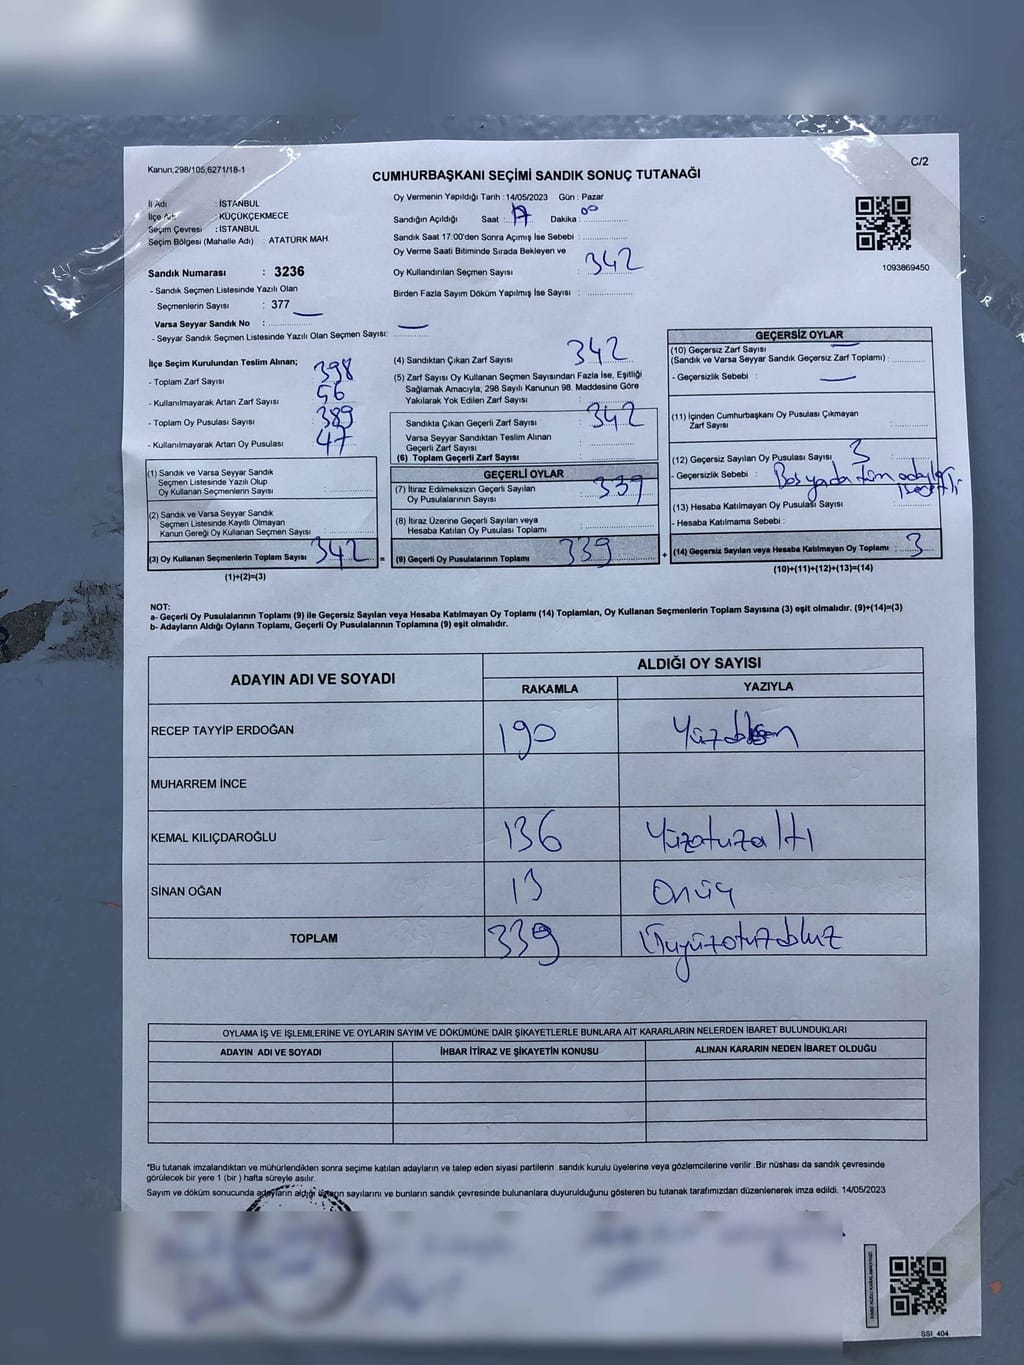 Kanun;298/105,6271/18-1
C/2
CUMHURBAŞKANI SEÇİMİ SANDIK SONUÇ TUTANAĞI
İl Adı : İSTANBUL
İlçe Adı : KÜÇÜKÇEKMECE
Seçim Çevresi : İSTANBUL
Seçim Bölgesi (Mahalle Adı) : ATATÜRK MAH.
Sandık Numarası : 3236
- Sandık Seçmen Listesinde Yazılı Olan
Seçmenlerin Sayısı : 377
Varsa Seyyar Sandık No :
- Seyyar Sandık Seçmen Listesinde Yazılı Olan Seçmen Sayısı:
Oy Vermenin Yapıldığı Tarih : 14/05/2023 Gün : Pazar
Sandığın Açıldığı Saat : 17 Dakika : 00
Sandık Saat 17:00'den Sonra Açımış İse Sebebi :
Oy Verme Saati Bitiminde Sırada Bekleyen ve
Oy Kullandırılan Seçmen Sayısı : 342
Birden Fazla Sayım Döküm Yapılmış İse Sayısı :
1093869450
İlçe Seçim Kurulundan Teslim Alınan;
- Toplam Zarf Sayısı : 398
- Kullanılmayarak Artan Zarf Sayısı : 56
- Toplam Oy Pusulası Sayısı : 389
- Kullanılmayarak Artan Oy Pusulası : 47
(1) Sandık ve Varsa Seyyar Sandık
Seçmen Listesinde Yazılı Olup
Oy Kullanan Seçmenlerin Sayısı :
(2) Sandık ve Varsa Seyyar Sandık
Seçmen Listesinde Kayıtlı Olmayan
Kanun Gereği Oy Kullanan Seçmen Sayısı :
(3) Oy Kullanan Seçmenlerin Toplam Sayısı : 342 =
(1)+(2)=(3)
(4) Sandıktan Çıkan Zarf Sayısı : 342
(5) Zarf Sayısı Oy Kullanan Seçmen Sayısından Fazla İse, Eşitliği
Sağlamak Amacıyla, 298 Sayılı Kanunun 98. Maddesine Göre
Yakılarak Yok Edilen Zarf Sayısı :
Sandıkta Çıkan Geçerli Zarf Sayısı : 342
Varsa Seyyar Sandıktan Teslim Alınan
Geçerli Zarf Sayısı :
(6) Toplam Geçerli Zarf Sayısı :
GEÇERLİ OYLAR
(7) İtiraz Edilmeksizin Geçerli Sayılan
Oy Pusulalarının Sayısı : 339
(8) İtiraz Üzerine Geçerli Sayılan veya
Hesaba Katılan Oy Pusulası Toplamı :
(9) Geçerli Oy Pusulalarının Toplamı : 339 +
GEÇERSİZ OYLAR
(10) Geçersiz Zarf Sayısı
(Sandık ve Varsa Seyyar Sandık Geçersiz Zarf Toplamı) :
- Geçersizlik Sebebi :
(11) İçinden Cumhurbaşkanı Oy Pusulası Çıkmayan
Zarf Sayısı :
(12) Geçersiz Sayılan Oy Pusulası Sayısı : 3
- Geçersizlik Sebebi : Boş yada tüm adaylar
(13) Hesaba Katılmayan Oy Pusulası Sayısı :
- Hesaba Katılmama Sebebi :
(14) Geçersiz Sayılan veya Hesaba Katılmayan Oy Toplamı : 3
(10)+(11)+(12)+(13)=(14)
NOT:
a- Geçerli Oy Pusulalarının Toplamı (9) ile Geçersiz Sayılan veya Hesaba Katılmayan Oy Toplamı (14) Toplamları, Oy Kullanan Seçmenlerin Toplam Sayısına (3) eşit olmalıdır. (9)+(14)=(3)
b- Adayların Aldığı Oyların Toplamı, Geçerli Oy Pusulalarının Toplamına (9) eşit olmalıdır.
ADAYIN ADI VE SOYADI
ALDIĞI OY SAYISI
RAKAMLA YAZIYLA
RECEP TAYYİP ERDOĞAN 190 Yüzdoksan
MUHARREM İNCE
KEMAL KILIÇDAROĞLU 136 Yüzotuzaltı
SİNAN OĞAN 13 Onüç
TOPLAM 339 Üçyüzotuzdokuz
OYLAMA İŞ VE İŞLEMLERİNE VE OYLARIN SAYIM VE DÖKÜMÜNE DAİR ŞİKAYETLERLE BUNLARA AİT KARARLARIN NELERDEN İBARET BULUNDUKLARI
ADAYIN ADI VE SOYADI İHBAR İTİRAZ VE ŞİKAYETİN KONUSU ALINAN KARARIN NEDEN İBARET OLDUĞU
*Bu tutanak imzalandıktan ve mühürlendikten sonra seçime katılan adayların ve talep eden siyasi partilerin sandık kurulu üyelerine veya gözlemcilerine verilir .Bir nüshası da sandık çevresinde
görülecek bir yere 1 (bir ) hafta süreyle asılır.
Sayım ve döküm sonucunda adayların aldığı oyların sayılarını ve bunların sandık çevresinde bulunanlara duyurulduğunu gösteren bu tutanak tarafımızdan düzenlenerek imza edildi. 14/05/2023
SSI_404